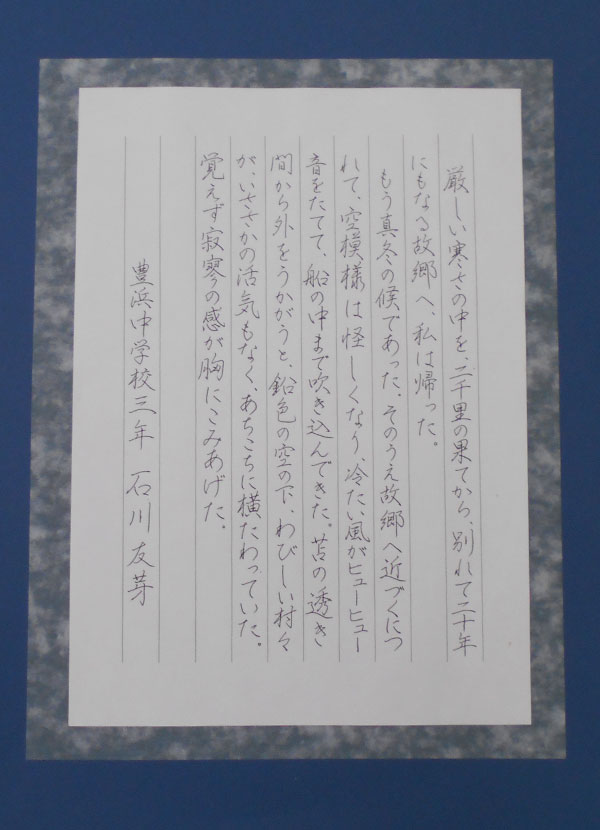 厳しい寒さの中を、二千里の果てから、別れて二十年
にもなる故郷へ、私は帰った。
もう真冬の候であった。そのうえ故郷へ近づくにつ
れて、空模様は怪しくなり、冷たい風がヒューヒュー
音をたてて、船の中まで吹き込んできた。苫の透き
間から外をうかがうと、鉛色の空の下、わびしい村々
が、いささかの活気もなく、あちこちに横たわっていた。
覚えず寂寥の感が胸にこみあげた。
豊浜中学校三年 石川友芽